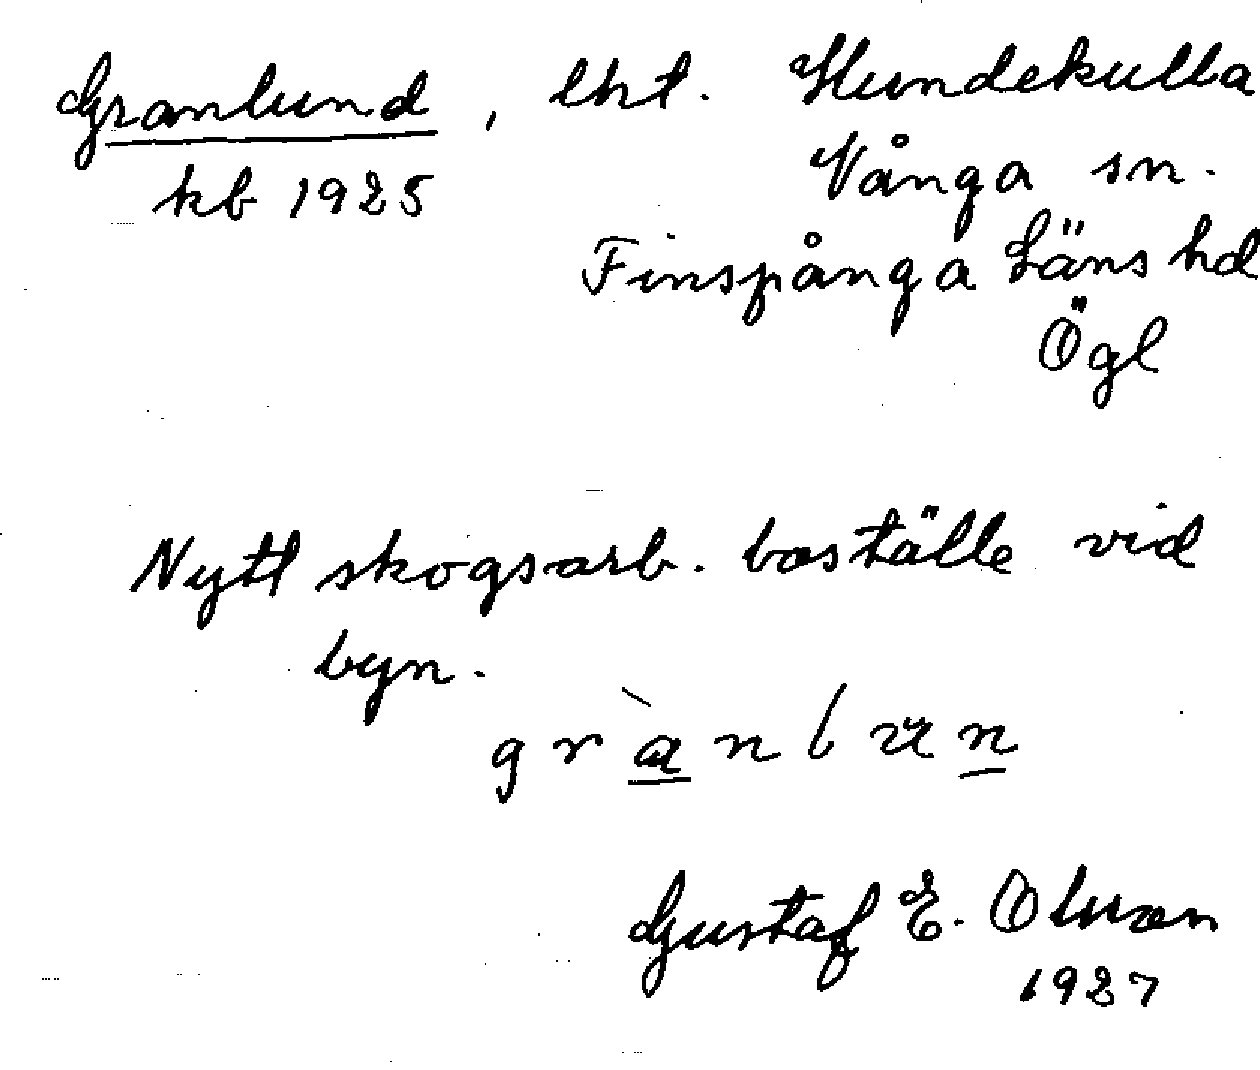 Granlund, lht. Hundekulla
kb 1925 Vånga sn.
Finspånga Läns hd
Ögl
Nytt skogsarb. boställe vid
byn.
grànlun
Gustaf E. Olsson
1927